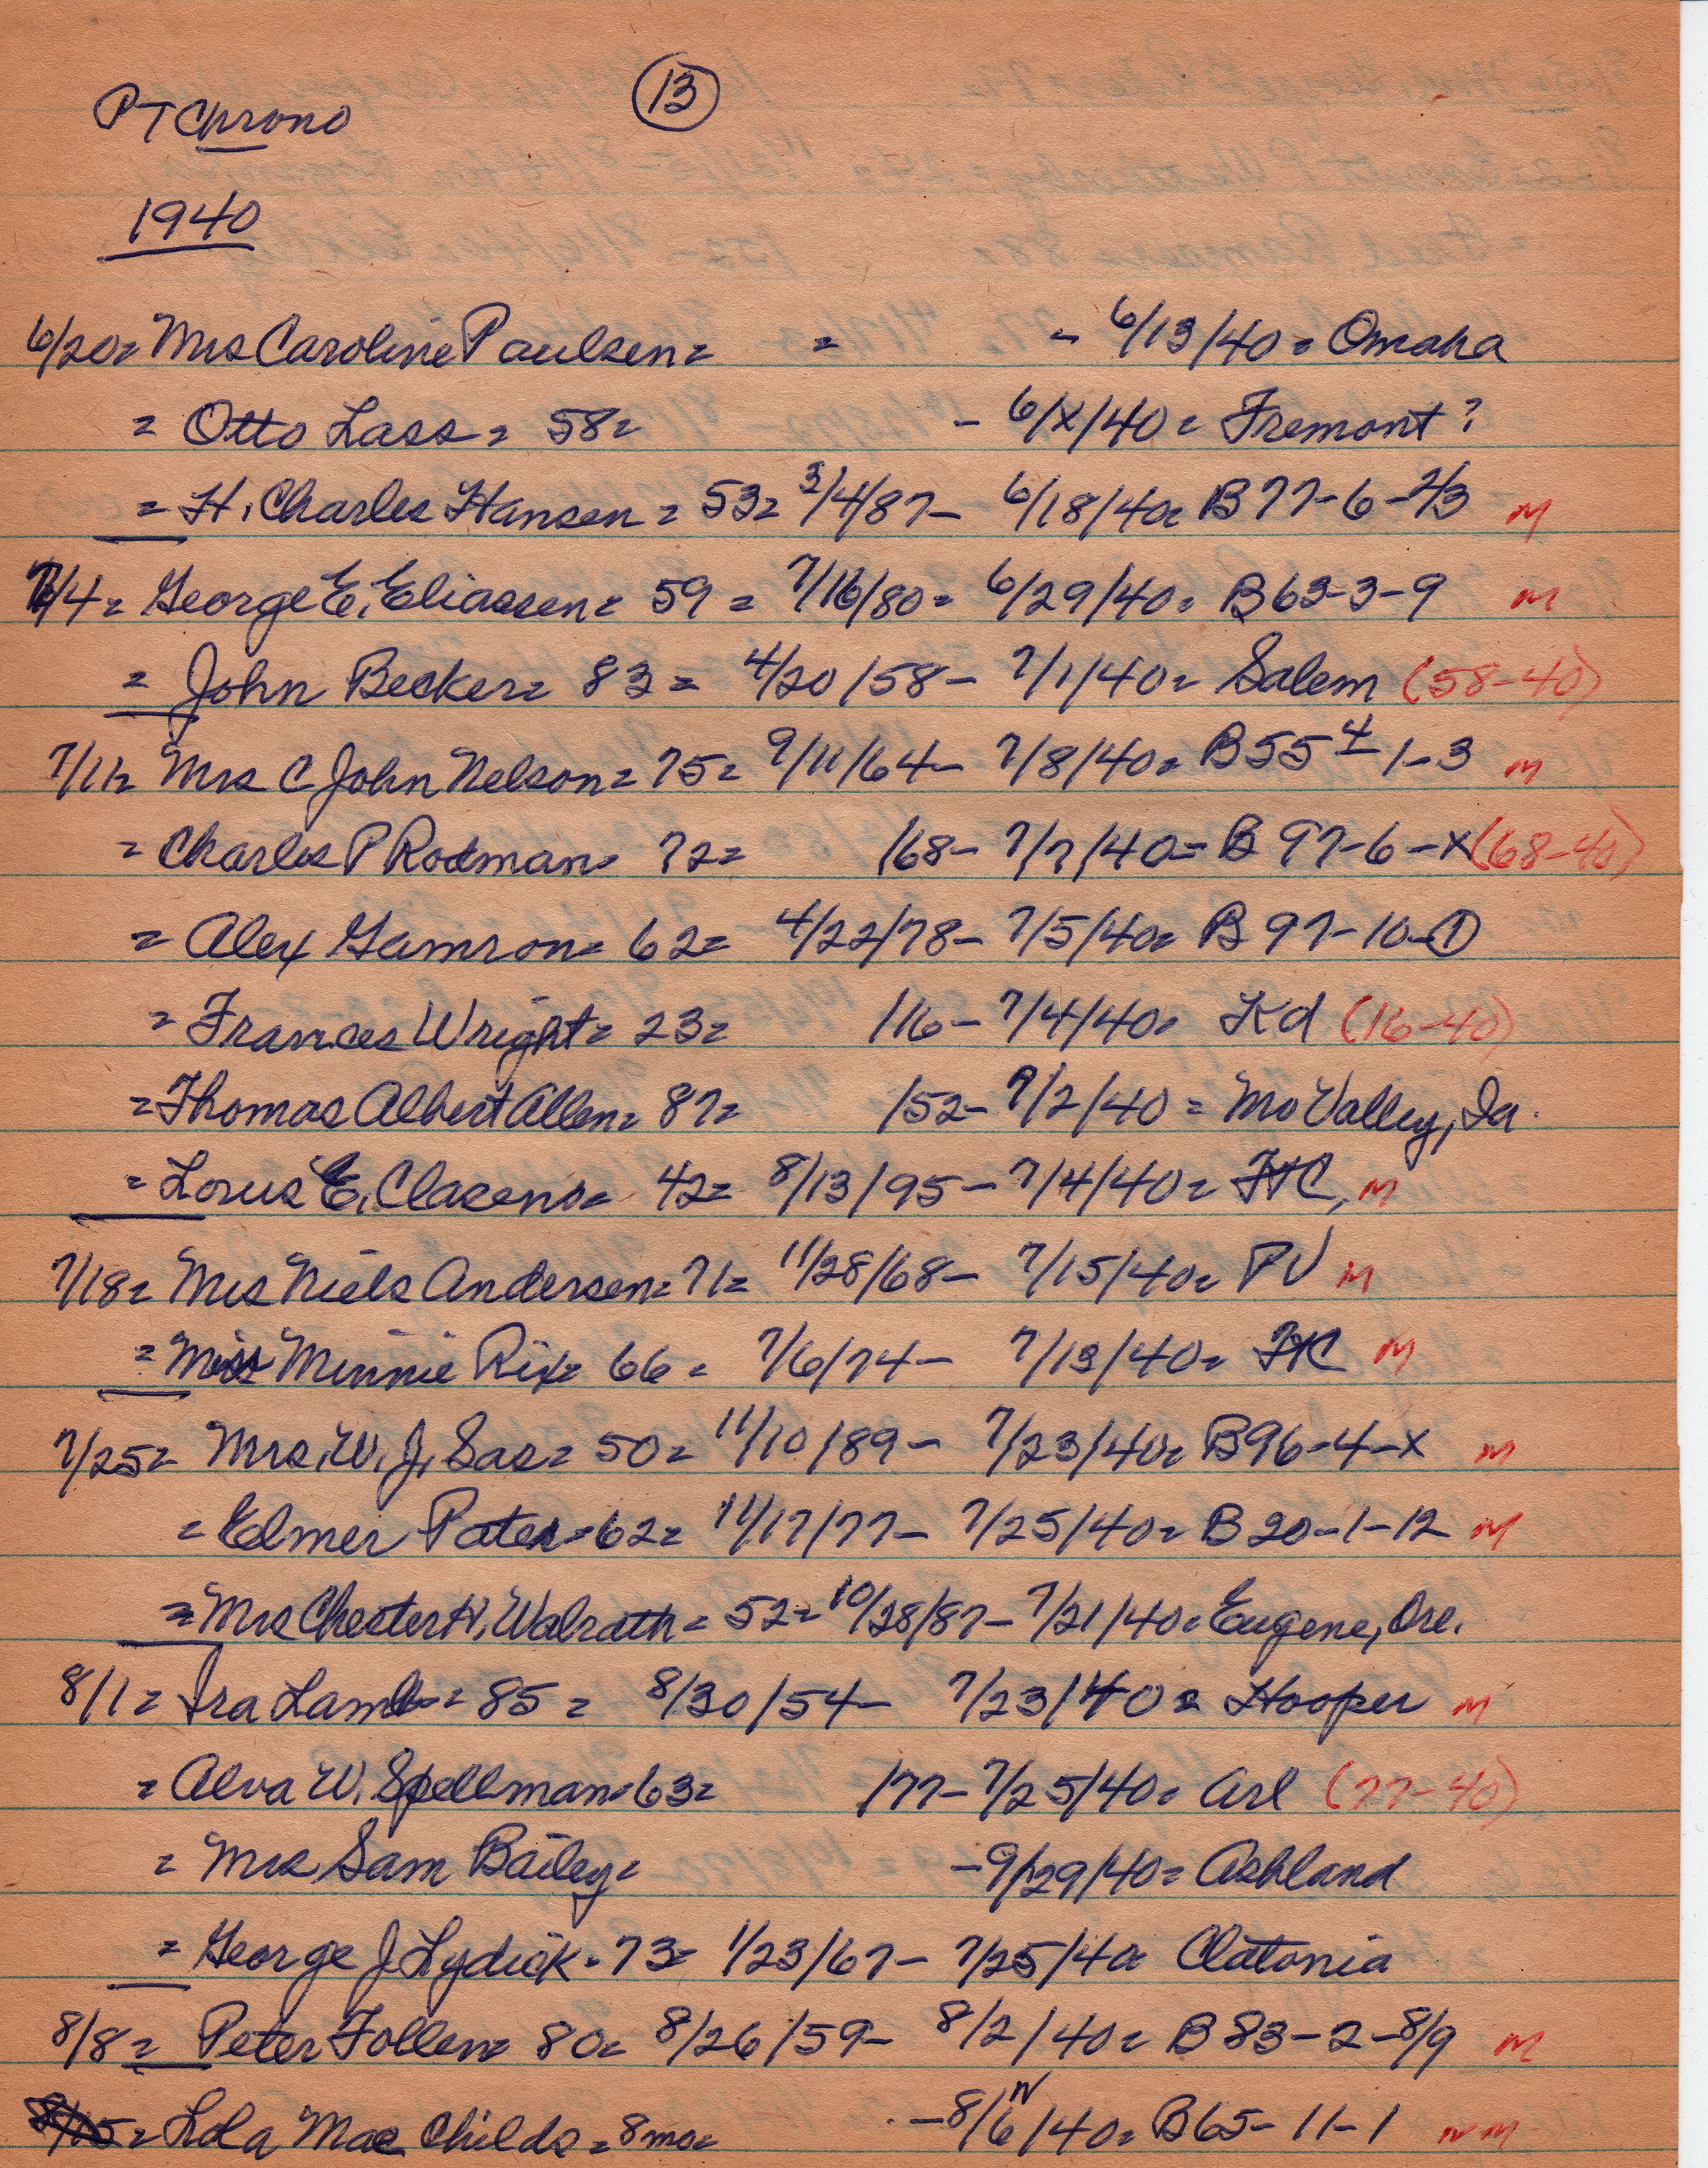 PT Chrono (13)
1940
6/20= Mrs Caroline Paulsen= = - 6/13/40= Omaha
= Otto Lass= 58= - 6/x/40= Fremont?
= H. Charles Hansen= 53= 3/4/87- 6/18/40= B77-6-2/3 M
7/4= George E. Eliassen= 59= 7/16/80= 6/29/40= B63-3-9 M
= John Becker= 82= 4/20/58- 7/1/40= Salem (58-40)
7/11= Mrs C John Nelson= 75= 9/11/64- 7/8/40= B55 4 1-3 M
= Charles P Rodman= 72= /68- 7/7/40= B97-6-x (68-40)
= Alex Gamron= 62= 4/22/78- 7/5/40= B97-10-(1)
= Frances Wright= 23= /16- 7/4/40= Kd (16-40)
= Thomas Albert Allen= 87= /52- 7/2/40= Mo Valley, Ia.
= Louis E. Clasen= 42= 8/13/95- 7/4/40= FtC, M
7/18= Mrs Niels Andersen= 71= 11/28/68- 7/15/40= PV M
= Miss Minnie Rix= 66= 7/6/74- 7/13/40= FtC M
7/25= Mrs. W. J. Sas= 50= 11/10/89- 7/23/40= B96-4-x M
= Elmer Pates= 62= 11/17/77- 7/25/40= B20-1-12 M
= Mrs Chester H. Walrath= 52= 10/28/87- 7/21/40= Eugene, Ore.
8/1= Ira Lamb= 85= 8/30/54- 7/23/40= Hooper M
= Alva W. Spellman= 63= /77- 7/25/40= Arl (77-40)
= Mrs Sam Bailey= -9/29/40= Ashland
= George J Lydick= 73= 1/23/67- 7/25/40= Clatonia
8/8= Peter Follen= 80= 8/26/59- 8/2/40= B83-2-8/9 M
8/15= Lola Mae Childs= 8mo= -8/6 N/40= B65-11-1 NM